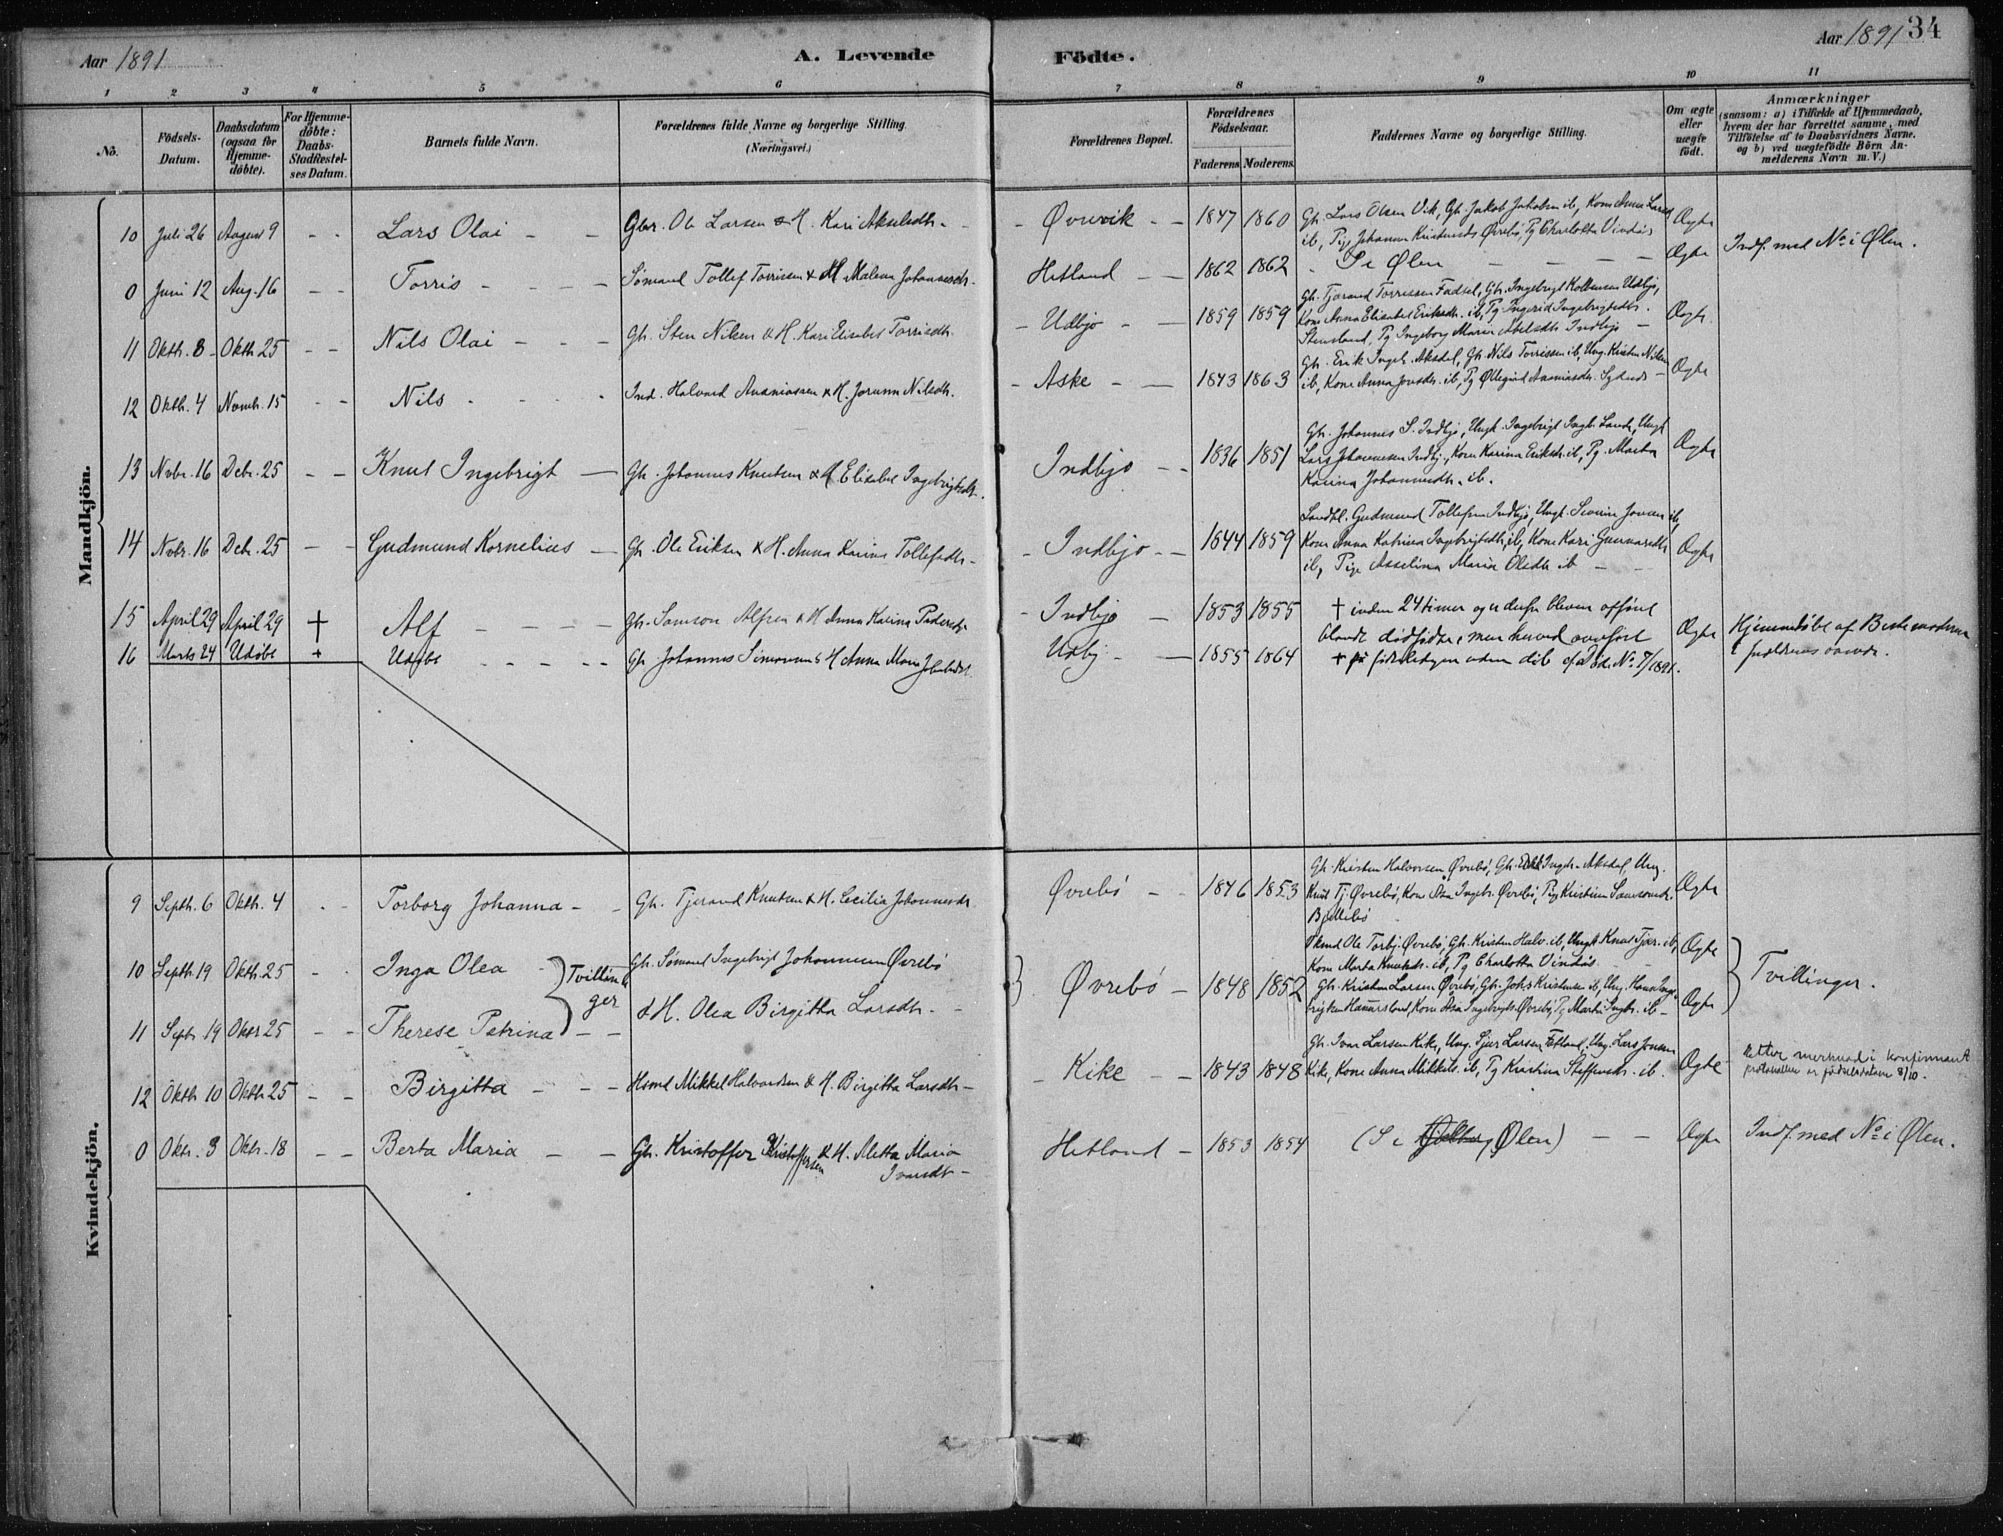 Aar 1891
A. Levende
Födte.
Aar 1891
34
1 2 3 4 5 6 7 8 9 10 11
Nö.
Födsels-
Datum.
Daabsdatum
(ogsaa for
Hjemme-
döbte).
For Hjemme-
döbte:
Daabs-
Stadfæstel-
ses Datum.
Barnets fulde Navn.
Forældrenes fulde Navne og borgerlige Stilling.
(Næringsvei.)
Forældrenes Bopæl.
Forældrenes
Födselsaar.
Faderens. Moderens.
Faddernes Navne og borgerlige Stilling.
Om ægte
eller
uægte
födt.
Anmærkninger
(saasom: a) i Tilfælde af Hjemmedaab,
hvem der har forrettet samme, med
Tilföielse af to Daabsvidners Navne.
og b) ved uægtefödte Börn An-
melderens Navn m. V.)
Mandkjön.
10 Juli 26 August 9 - - Lars Olai - - Gbr. Ole Larsen & H. Kari Akselsdtr. - - Øvrevik - - 1847 1860 Gb. Lars Olsen Vik, Gb. Jakob Jakobsen ib, Kone Anna Larsd.
ib, Pige Johanna Kristensd. Øvrebö, Pg Charlotta Vindös Ægte
0 Juni 12 Aug. 16 - - Torris - - - - Sömand Tollef Torrissen & H. Malena Johannesdr. - Hetland - - 1862 1862 - S i Ølen - - - - Ægte Indf. med No i Ølen.
11 Oktb. 8 - Oktb 25 - - Nils Olai - - - Gb. Sten Nilsen & H. Kari Elisabet Torrisdtr. - Udbjo - - 1859 1859 Gb. Tjerand Torrissen Fadsel, Gb. Ingebrigt Kolbensen Udbjo,
Kone Anna Elisabet Eriksdtr. ib, Pg Ingerid Ingebrigtsdtr.
Stensland, Pg Ingeborg Maria Abelsdtr Indbjo - Ægte.
12 Oktb. 4 Novmb. 15 - - Nils - - - - Ind. Halvard Ananiassen & H. Jorunn Nilsdtr. - Aske - - 1843 1863 Gb. Erik Ingeb. Aksdal, Gb. Nils Torrissen ib, Ung. Kristen Nilsen
ib, Kone Anna Jonsdtr. ib, Pg Øllegård Ananiasdr. - Ægte
13 Novbr. 16 Debr. 25 - - Knut Ingebrigt - Gb. Johannes Knutsen & H. Elisabet Ingebrigtsdtr. Indbjo - - 1836 1851 Gb. Johannes S. Indbjo, Ungk. Ingebrigt Ingb. Lande, Ungk
Lars Johannesen Indbj., Kone Karina Eriksdr. ib, Pg. Marta
Karina Johannesdtr. ib. Ægte
14 Novbr. 16 Debr. 25 - - Gudmund Kornelius - Gb. Ole Eriksen & H. Anna Karina Tollefsdtr. - - Indbjo - - 1844 1859 Landbl. Gudmund Tollefsen Indbjo, Ungk. Severin Jonsen ib,
Kone Anna Katrina Ingebrigtsdtr. ib, Kone Kari Gunnarsdtr
ib, Pige Asselina Maria Olsdtr ib - - Ægte
15 April 29 April 29 + Alf - - - - Gb. Samson Alfsen & H Anna Karina Pedersdtr - Indbjo - 1853 1855 + inden 24 timer og er derfor bleven opfört
blandt dödfödte, men herved overfört Ægte Hjemmedöbt af Bestemoderen
i forældrenes nærvær.
16 Marts 24 Udöbt + Udöbt - - - - Gb Johannes Simonsen & H Anna Maria Jakobsdt. Udbj - - 1855 1864 + på födseldagen uden dåb cf Döde No 7/1891.
Kvindekjön.
9 Septb. 6 Oktb. 4 - - Torborg Johanna - - Gb. Tjerand Knutsen & H. Cecilia Johannesdtr Øvrebö - - 1846 1853 Gb. Kristen Halvorsen Øvrebö, Gb. Erik Ingeb. Aksdal, Ung.
Knut Tj. Øvrebö, Kone Åsa Ingebr. Øvrebö, Pige Kristina Samsonsdr.
Bjellebö Ægte
10 Septb 19 Oktb. 25 - Inga Olea - Tvillin- Gb. Sömand Ingebrigt Johannesen Øvrebö
ger Øvrebö - 1848 1852 Ole Torbj. Øvrebö, Gb. Kristen Halv. ib, Ungk Knut Tjer. ib,
Kone Marta Knutsdr. ib, Pg Charlotta Vindös - Ægte Tvillinger.
11 Septb 19 Oktbr 25 - - Therese Petrina - - & H. Olea Birgitha Larsdtr. - - Gb. Kristen Larsen Øvrebö, Gb. Johs Kristensen ib, Ung. Hans Inge-
brigtsen Hamarsland, Kone Åsa Ingebrigts Øvrebö, Pg Marta Ingbr. ib - Ægte
12 Oktb 10 Oktb 25 - - Birgitta - - - Hsmd Mikkel Halvardsen & H. Birgitta Larsdtr - - Kike - - 1843 1848 Gb. Ivar Larsen Kike, Ung. Sjur Larsen Fetland, Ung. Lars Jonsen
Kike, Kone Anna Mikkels. ib, Pg Kristina Steffensdr. ib. Ægte merknad i konfirmant
protokollen er födselsdatum 8/10.
0 Oktr. 3 Oktr. 18 - - Berta Maria - - Gb. Kristoffer Kristoffersen & H. Metta Maria
Ivarsdtr - Hetland - 1853 1854 (S i Ølen) - - Ægte Indf. med No i Ølen.